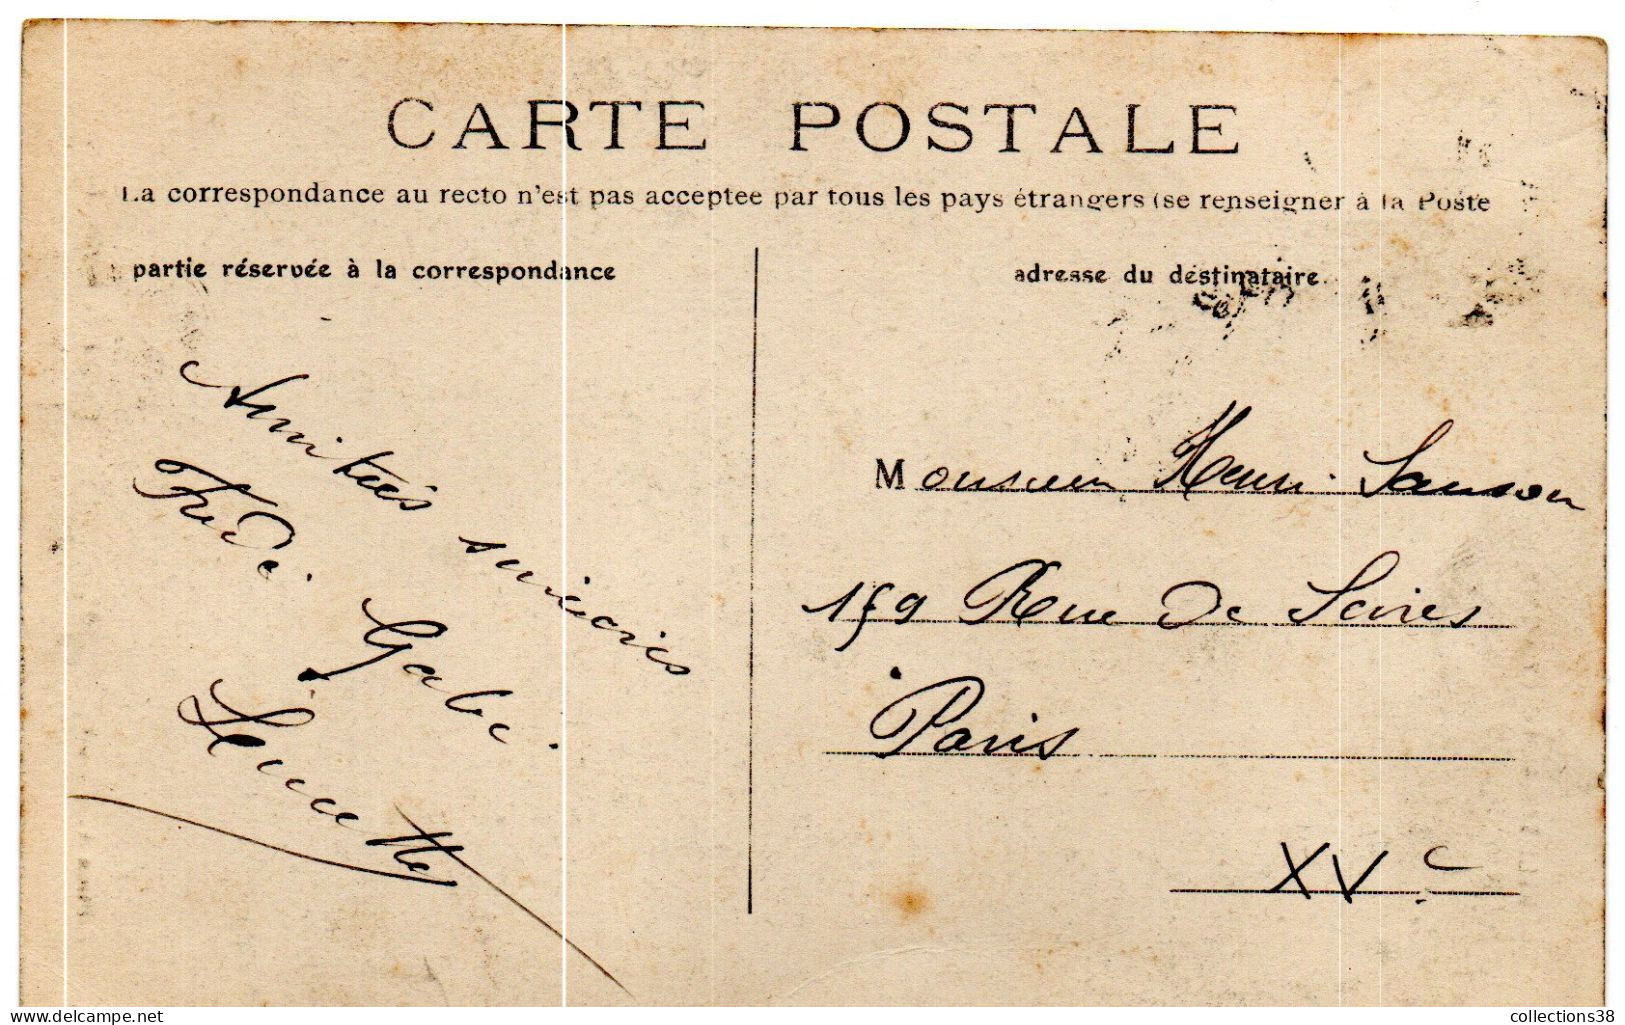 CARTE POSTALE
La correspondance au recto n'est pas acceptee par tous les pays étrangers (se renseigner à la Poste
partie réservée à la correspondance
adresse du destinataire
Amitiés sincères
Fréde. Gabi.
Monsieur Henri Sanson
159 Rue De Sèvres
Paris
XVe
collections38